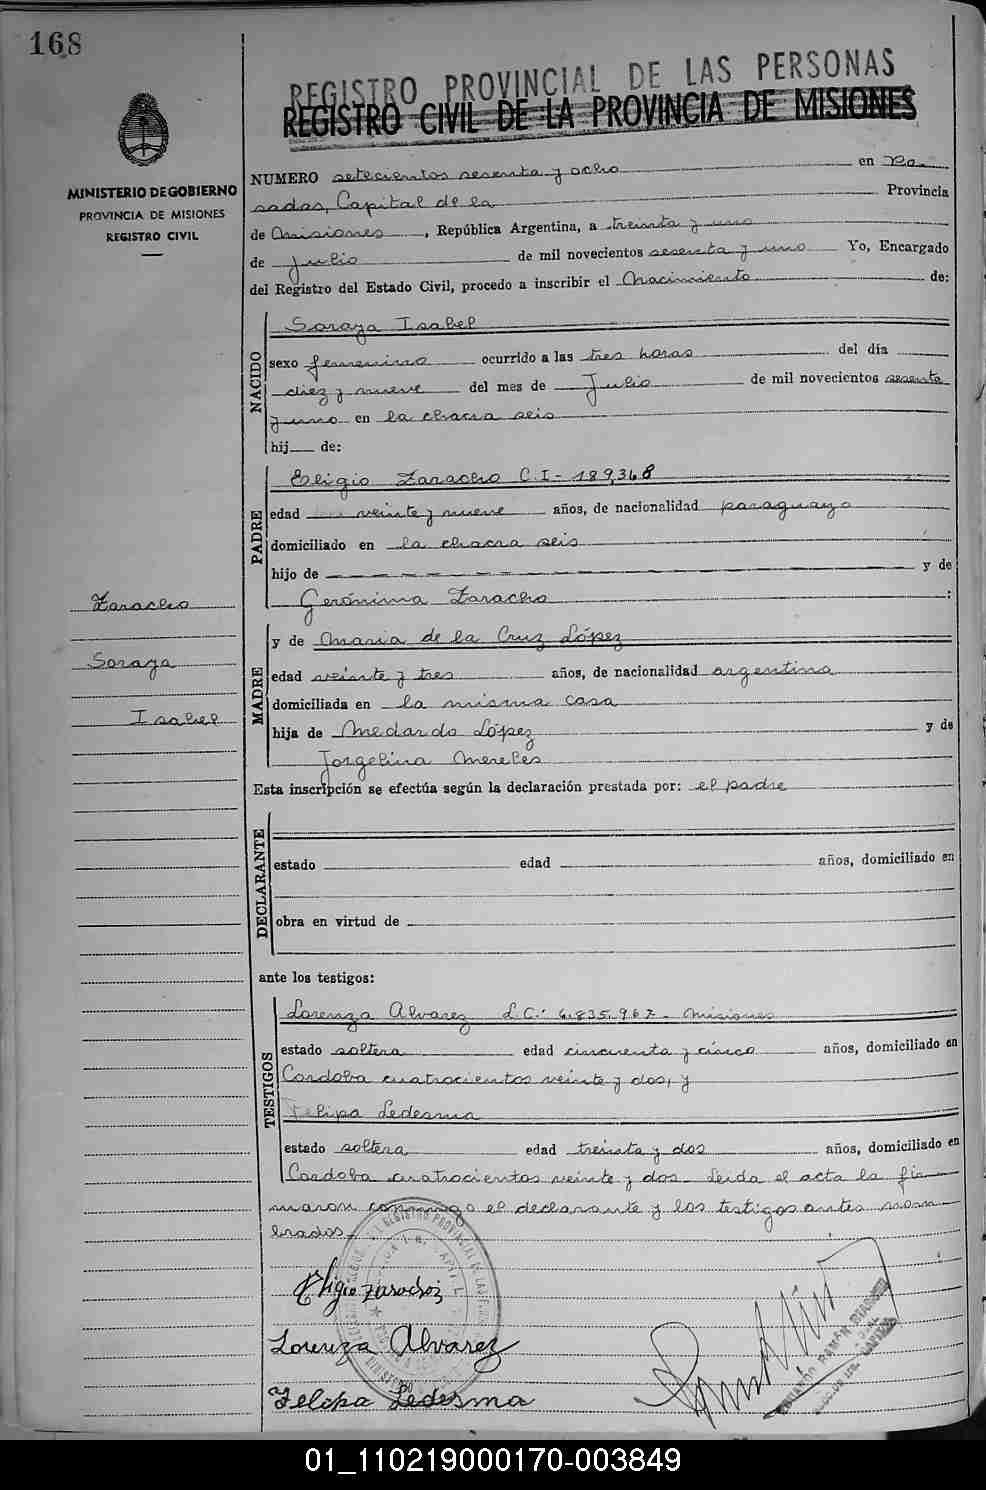 168
REGISTRO PROVINCIAL DE LAS PERSONAS
REGISTRO CIVIL DE LA PROVINCIA DE MISIONES
MINISTERIO DE GOBIERNO
PROVINCIA DE MISIONES
REGISTRO CIVIL
NUMERO setecientos sesenta y ocho en Po-
sadas, Capital de la Provincia
de Misiones, República Argentina, a treinta y uno
de Julio de mil novecientos sesenta y uno Yo, Encargado
del Registro del Estado Civil, procedo a inscribir el Nacimiento de:
NACIDO
Soraya Isabel
sexo femenino ocurrido a las tres horas del día
diez y nueve del mes de Julio de mil novecientos sesenta
y uno en la chacra seis
hij de:
PADRE
Eligio Zaracho C.I- 189,368
edad veinte y nueve años, de nacionalidad paraguayo
domiciliado en la chacra seis
hijo de — — — — — — — — y de
Gerónima Zaracho :
Zaracho
Soraya
Isabel
MADRE
y de Maria de la Cruz López
edad veinte y tres años, de nacionalidad argentina
domiciliada en la misma casa
hija de Medardo López y de
Jorgelina Mereles
Esta inscripción se efectúa según la declaración prestada por: el padre
DECLARANTE
estado edad años, domiciliado en
obra en virtud de
ante los testigos:
TESTIGOS
Lorenza Alvarez L.C.: 6.835.967- Misiones
estado soltera edad cincuenta y cinco años, domiciliado en
Cordoba cuatrocientos veinte y dos, y
Felipa Ledesma
estado soltera edad treinta y dos años, domiciliado en
Cordoba cuatrocientos veinte y dos- Leida el acta la fir-
maron conmigo el declarante y los testigos antes nom
brados-
Eligio Zarachoiz
Lorenza Alvarez
Felipa Ledesma
01_110219000170-003849